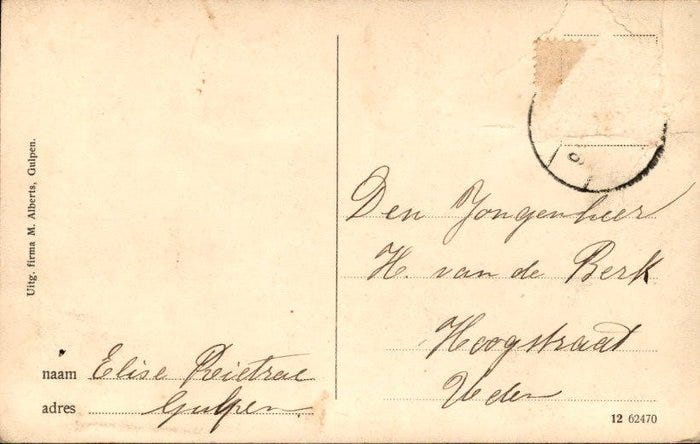 Uitg. firma M. Alberts, Gulpen.
Den Jongenheer
H. van de Berk
Hoogstraat
Veden
naam Elise
adres Gulpen
12 62470